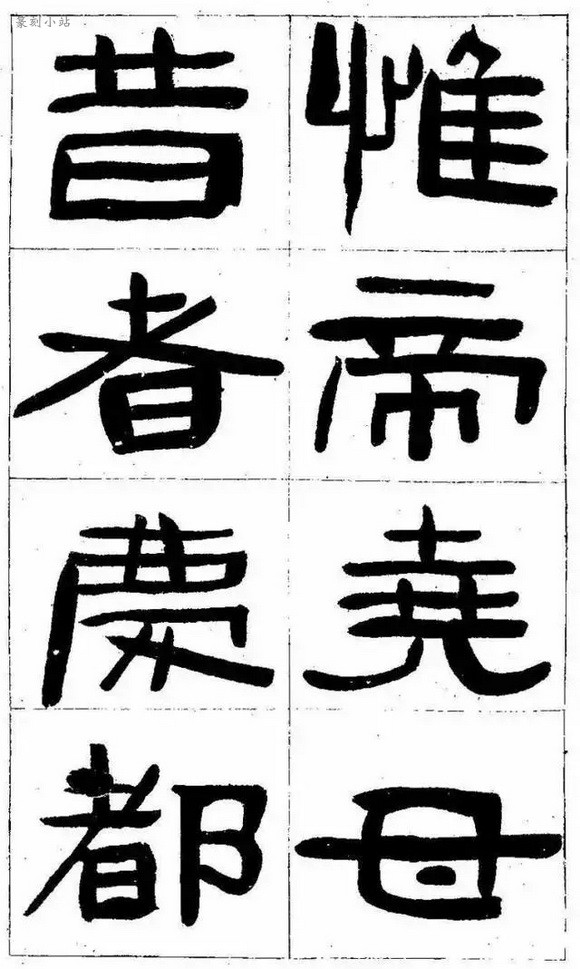 篆刻小站
惟帝堯母
昔者慶都